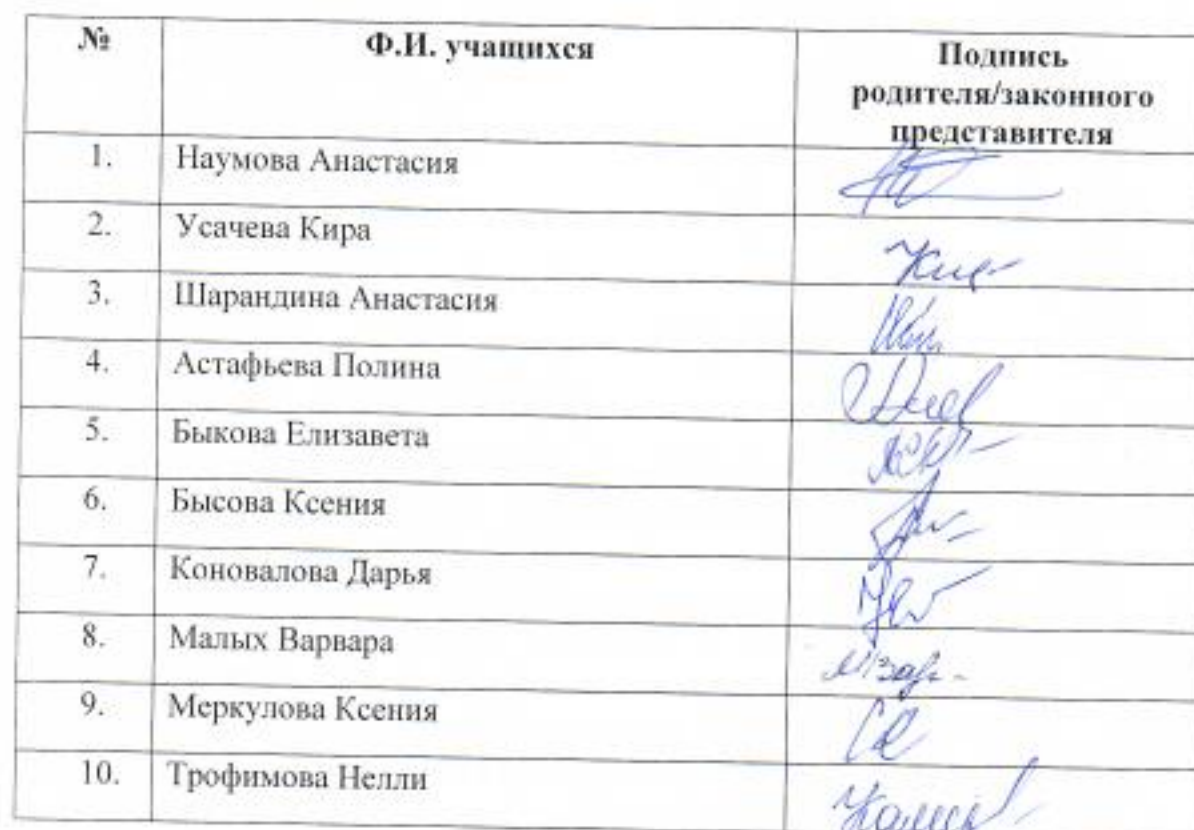 № Ф.И. учащихся Подпись
родителя/законного
представителя
1. Наумова Анастасия
2. Усачева Кира
3. Шарандина Анастасия
4. Астафьева Полина
5. Быкова Елизавета
6. Бысова Ксения
7. Коновалова Дарья
8. Малых Варвара
9. Меркулова Ксения
10. Трофимова Нелли